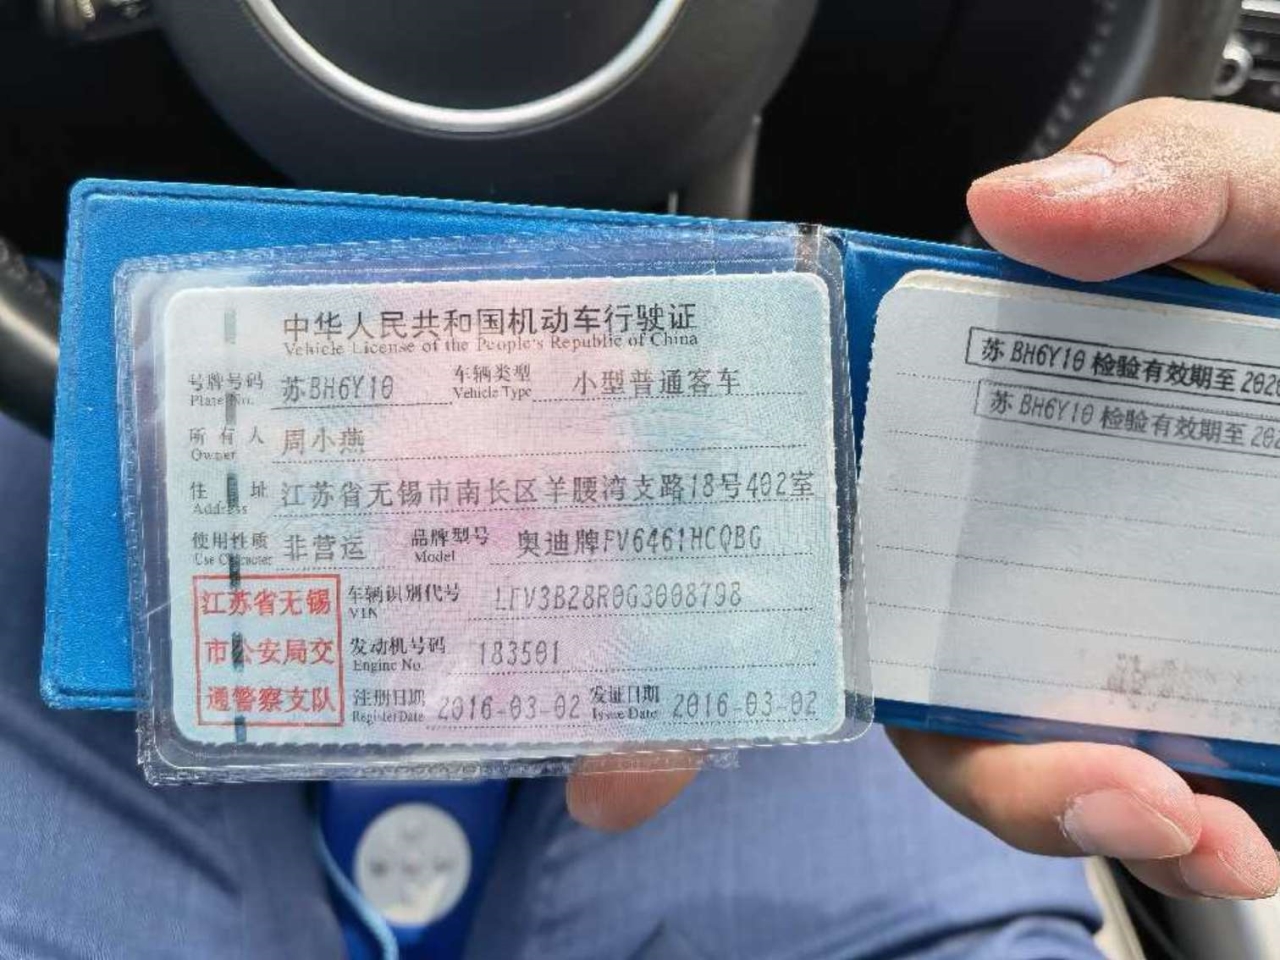 中华人民共和国机动车行驶证
Vehicle License of the People's Republic of China
号牌号码 苏BH6Y10 车辆类型 小型普通客车
Plate No. Vehicle Type
所有人 周小燕
Owner
住址 江苏省无锡市南长区羊腰湾支路18号402室
Address
使用性质 非营运 品牌型号 奥迪牌FV6461HCQBG
Use Character Model
江苏省无锡
市公安局交
通警察支队
车辆识别代号 LFV3B28R0G3008798
VIN
发动机号码 183501
Engine No.
注册日期 2016-03-02 发证日期 2016-03-02
Register Date Issue Date
苏BH6Y10检验有效期至202
苏BH6Y10检验有效期至20